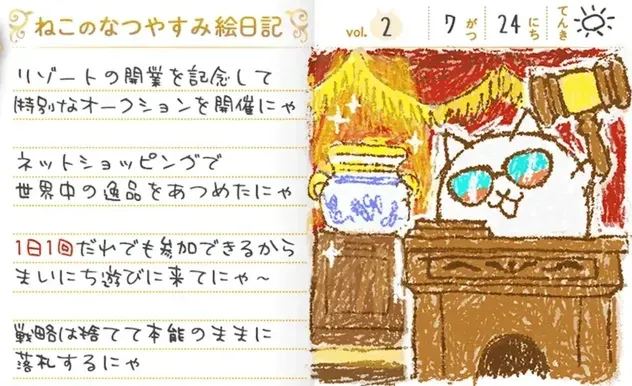 ねこのなつやすみ絵日記
vol. 2 7 がつ 24 にち てんき
リゾートの開業を記念して
特別なオークションを開催にゃ
ネットショッピングで
世界中の逸品をあつめたにゃ
1日1回だれでも参加できるから
まいにち遊びに来てにゃ～
戦略は捨てて本能のままに
落札するにゃ